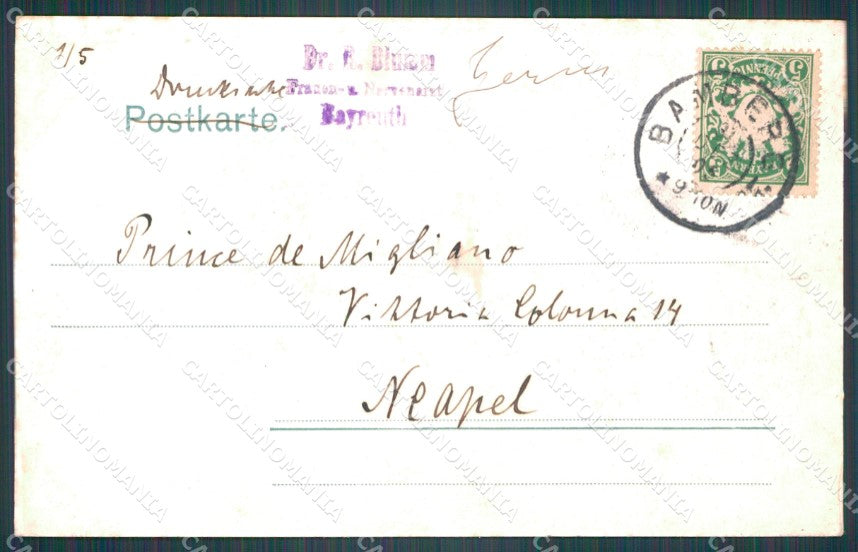 7/5
Drucksache
Postkarte.
Dr. A. Blumm
Frauen- u. Nervenarzt
Bayreuth
BAMBERG
5 PFENNIG 5
BAYERN
Prince de Migliano
Viktoria Colonna 14
Neapel
CARTOLINOMANIA